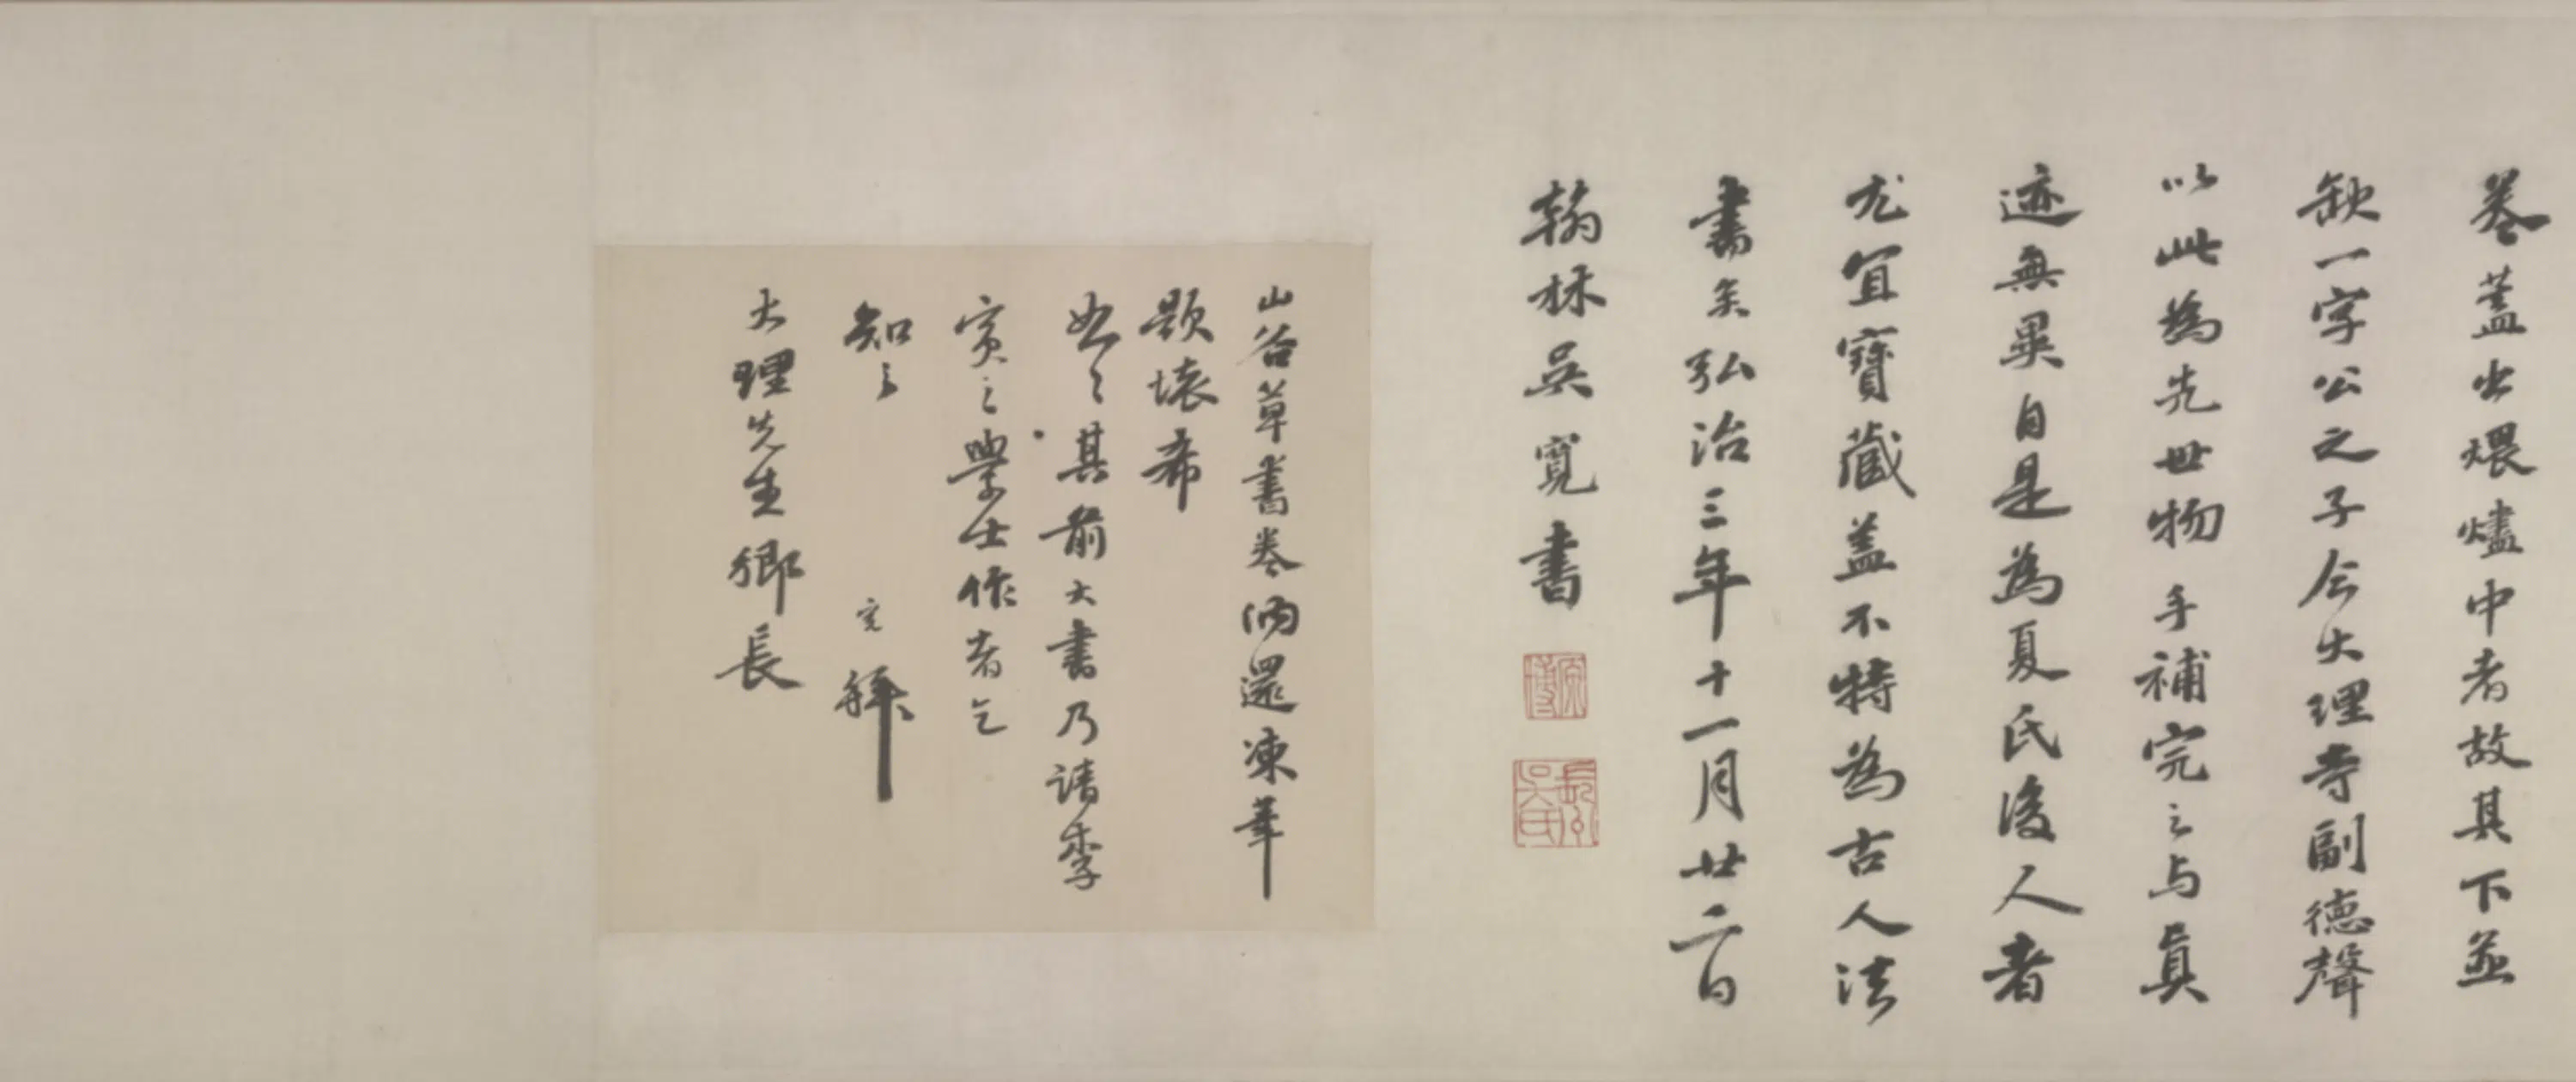 卷蓋出煨燼中者故其下並
缺一字公之子今大理寺副德聲
以此為先世物手補完之与真
迹無異自是為夏氏後人者
尤宜寶藏蓋不特為古人法
書矣弘治三年十一月廿二日
翰林吳寬書
原博
長洲吳氏
山谷草書卷納還凍筆
題壞希
恕其前大書乃請李
賓之學士作者乞
知之 寬拜
大理先生鄉長